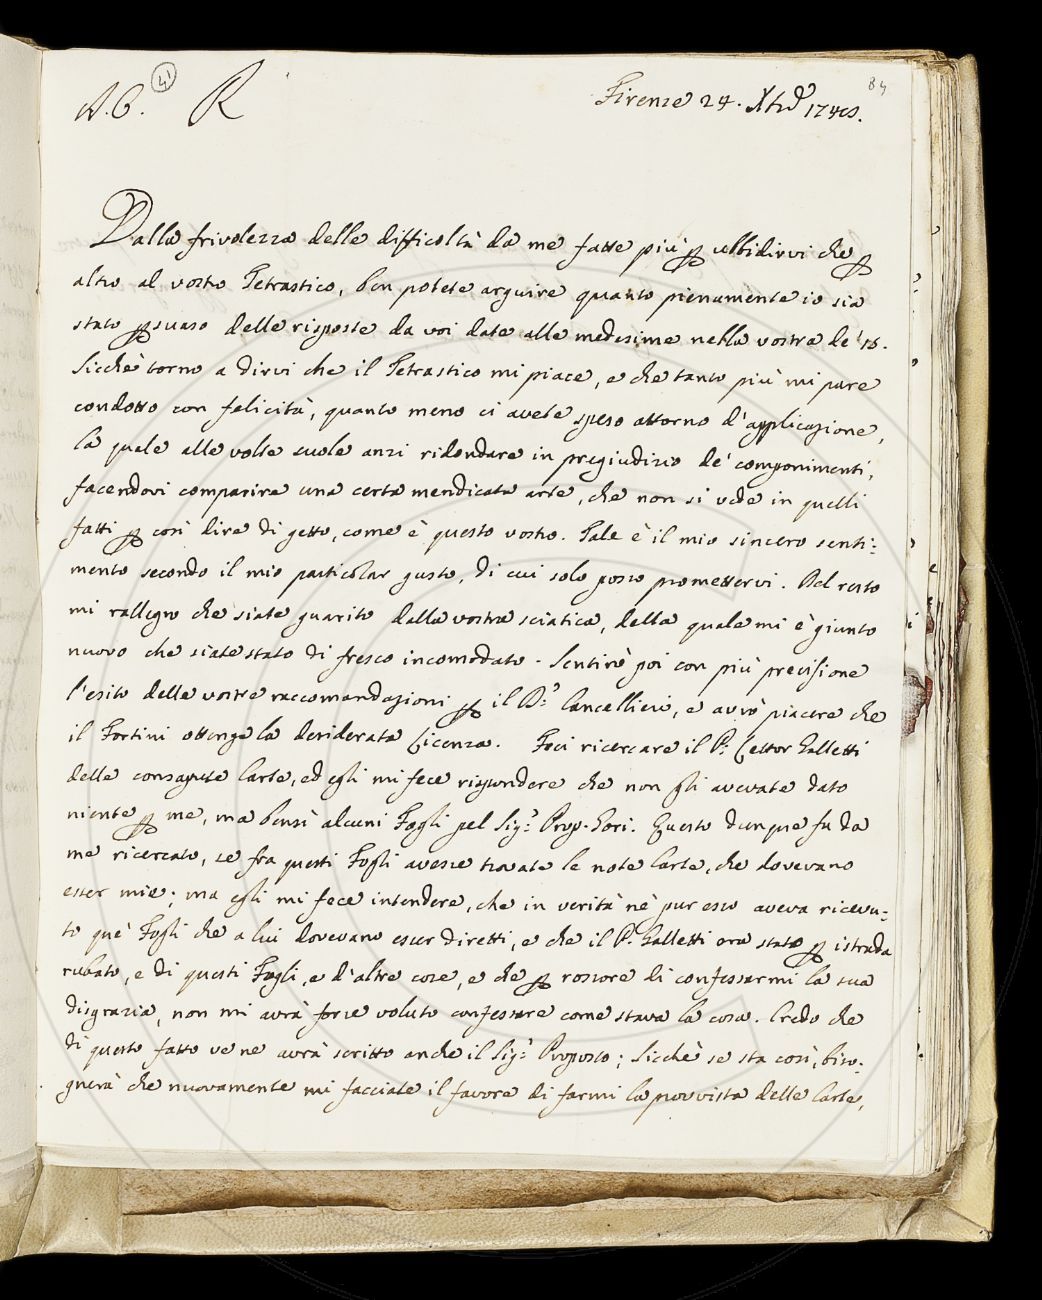 A. C. 41 R
84
Firenze 24. Xbre 174
Dalla frivolezza delle difficoltà da me fatte più p ubbidirvi che p
altro al vostro Tetrastico, ben potete arguire quanto pienamente io sia
stato psuaso delle risposte da voi date alle medesime nella vostra de'
Sicchè torno a dirvi che il Tetrastico mi piace, e che tanto più mi pare
condotto con felicità, quanto meno ci avete speso attorno d'applicazione,
la quale alle volte suole anzi ridondare in pregiudizio de' componimenti,
facendovi comparire una certa mendicata arte, che non si vede in quelli
fatti p così dire di getto, come è questo vostro. Tale è il mio sincero senti:
mento secondo il mio particolar gusto, di cui solo posso promettervi. Del resto
mi rallegro che siate guarito dalla vostra sciatica, della quale mi è giunto
nuovo che siate stato di fresco incomodato. Sentirò poi con più precisione
l'esito delle vostre raccomandazioni p il Cancellieri, e avrò piacere che
il Fortini ottenga la desiderata Licenza. Feci ricercare il P. Lettor Galletti
delle consapute Carte, ed egli mi fece rispondere che non gli avevate dato
niente p me, ma bensì alcuni Fogli pel Sig.r Prop. Gori. Questo dunque fu da
me ricercato, se fra questi Fogli avesse trovate le note Carte, che dovevano
esser mie; ma egli mi fece intendere, che in verità nè pur esso aveva ricevu:
to què Fogli che a lui dovevano esser diretti, e che il P. Galletti era stato p istrada
rubato, e di questi Fogli, e d'altre cose, e che p rossore di confessarmi la sua
disgrazia, non mi avrà forse voluto confessare come stava la cosa. Credo che
di questo fatto ve ne avrà scritto anche il Sig.r Proposto; Sicchè se sta così, biso:
gnerà che nuovamente mi facciate il favore di farmi la provvista delle Carte,